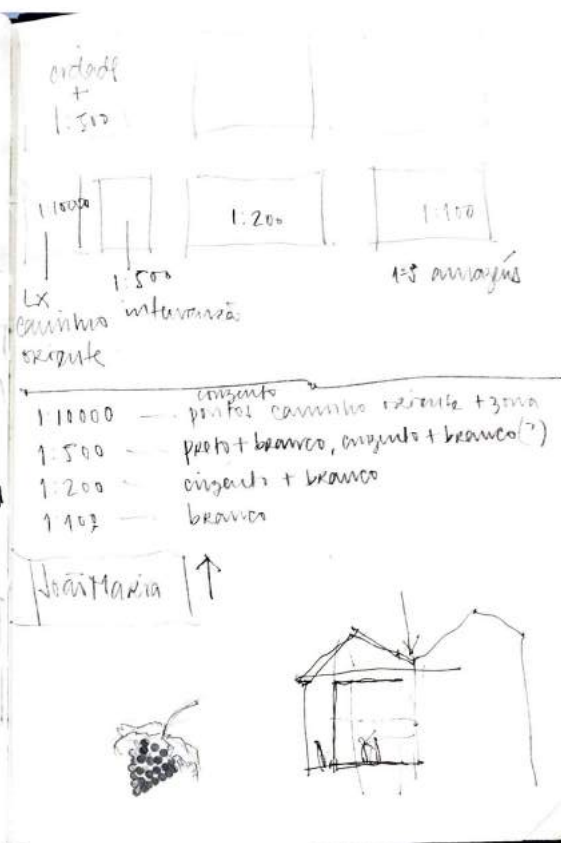 cidade
+
1:500
1:10000
1:200
1:100
1:500
LX
caminho intervenção
oriente
1=3 armazéns
cinzento
1:10000 — pontos caminho oriente + zona
1:500 — preto + branco, cinzento + branco (?)
1:200 — cinzento + branco
1:100 — branco
João Maria